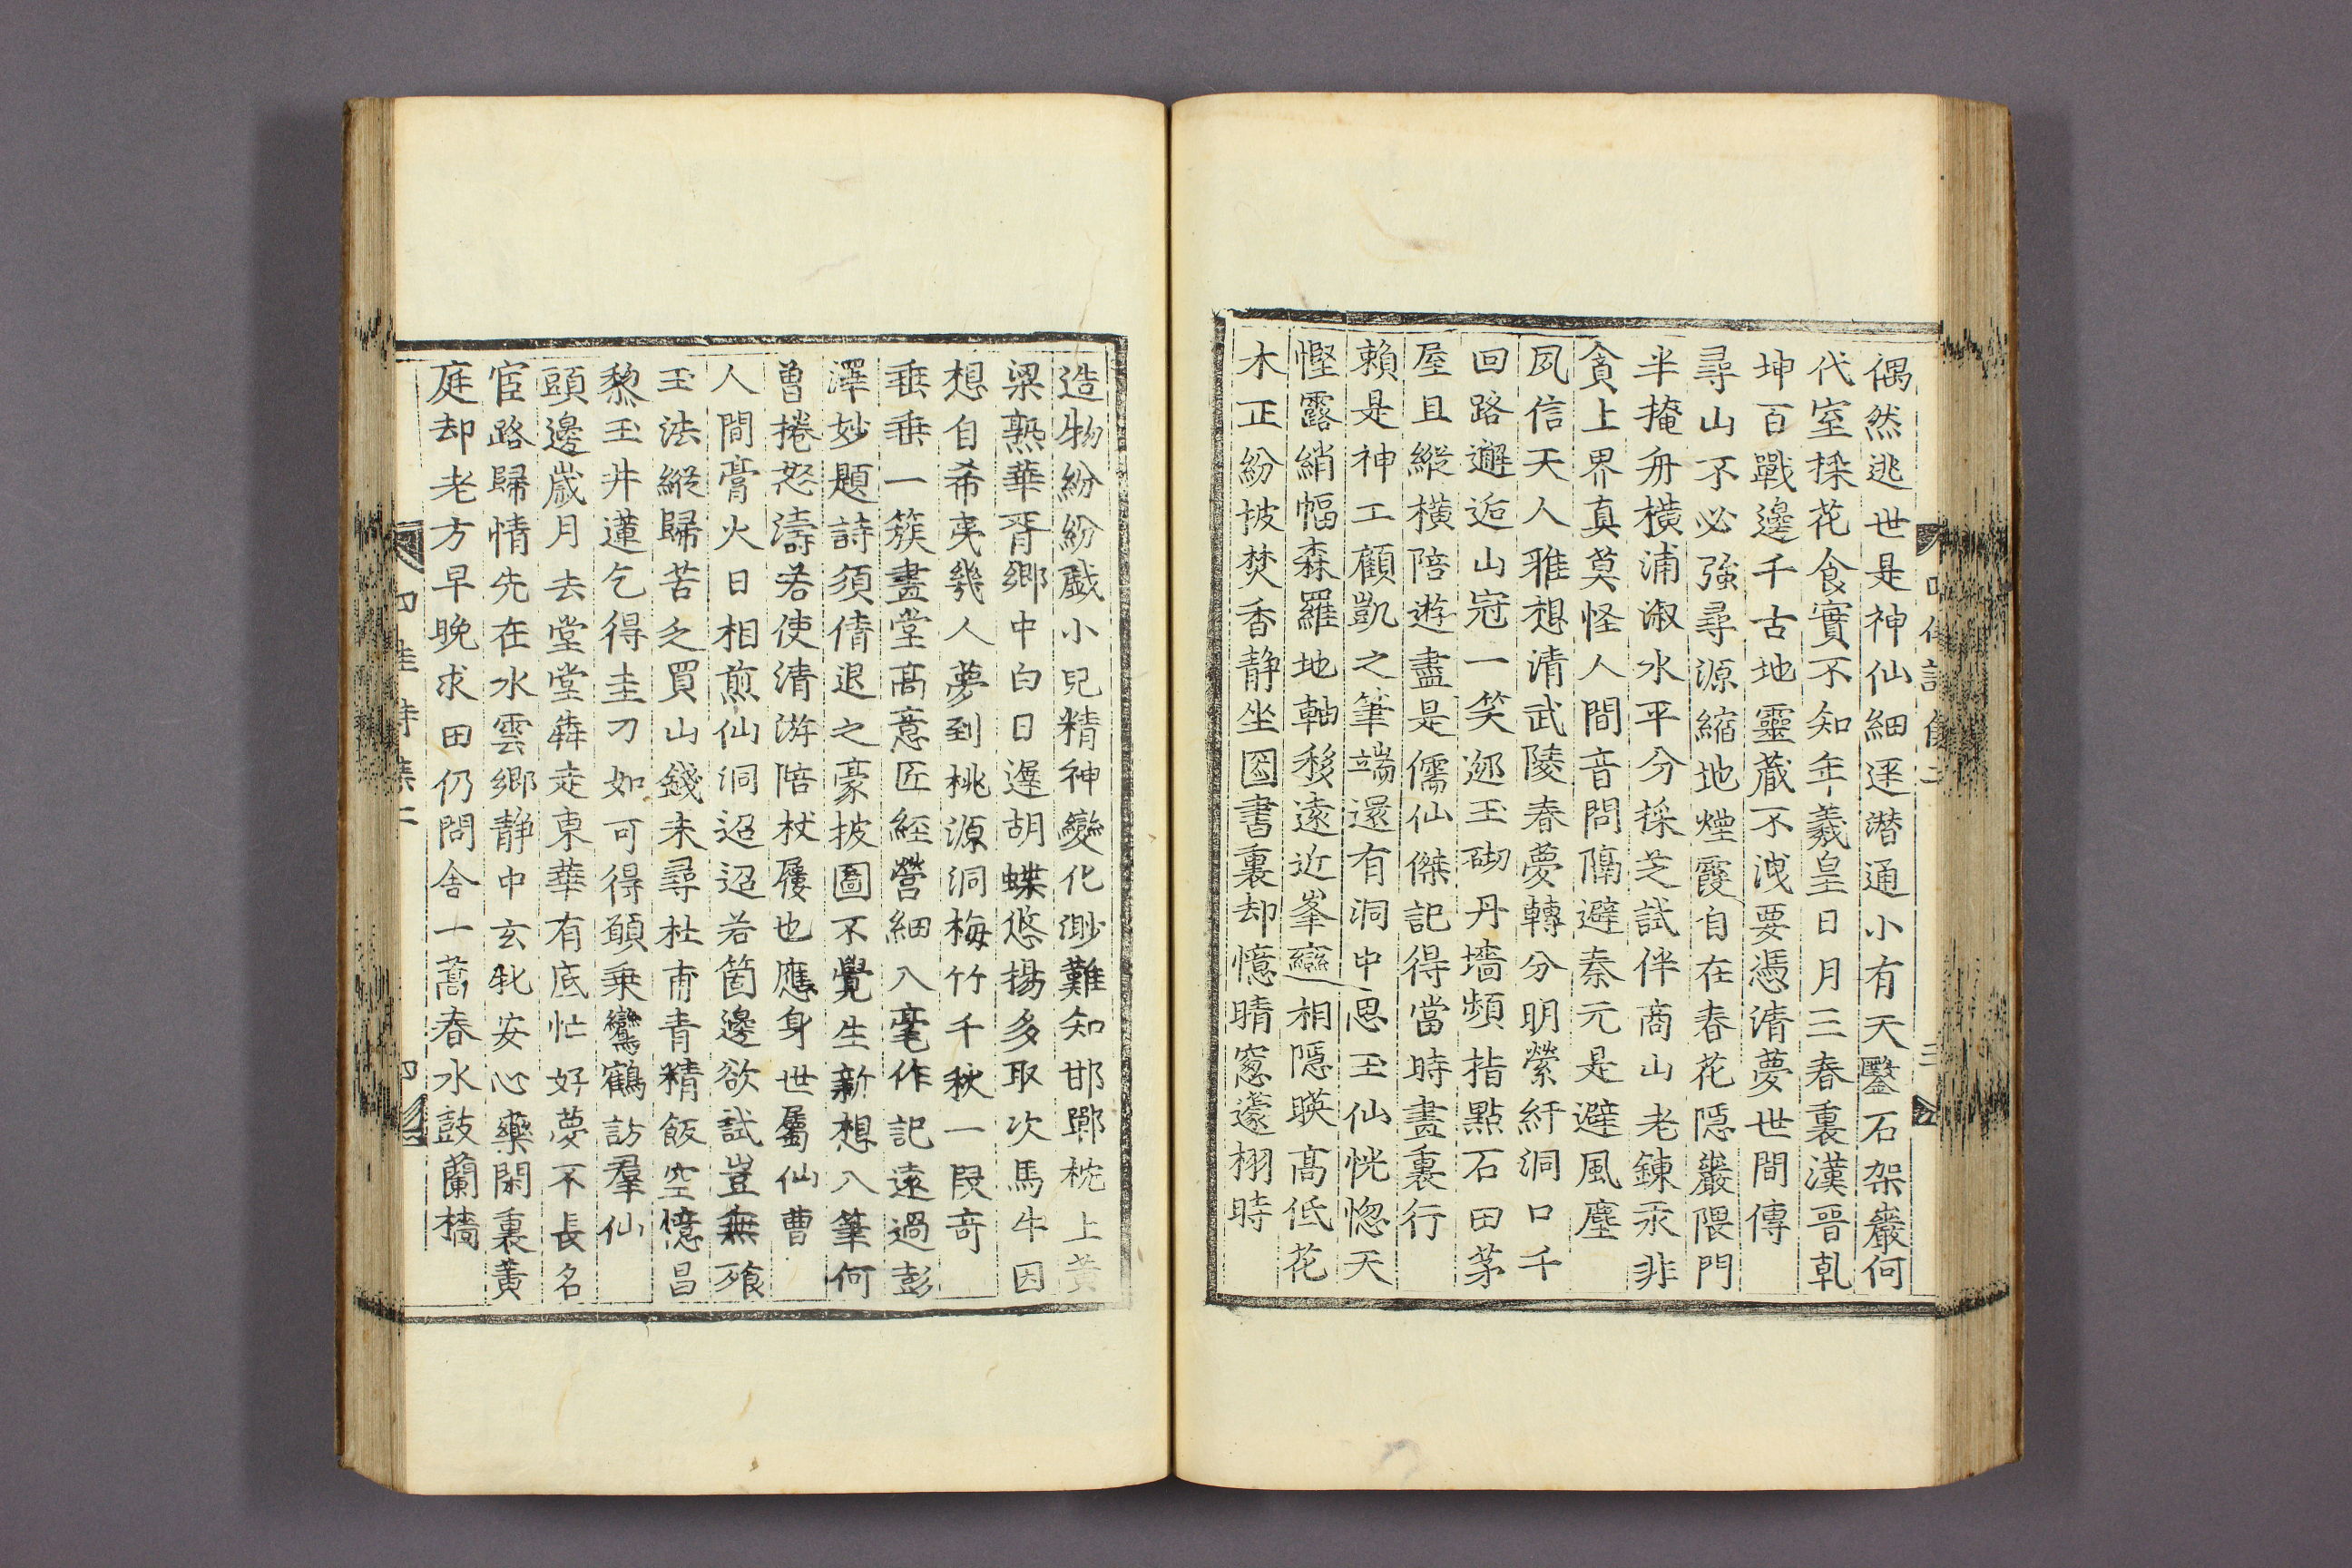 偶然逃世是神仙細逕潜通小有天鑿石架巖何
代室採花食實不知年羲皇日月三春裏漢晉乹
坤百戰邊千古地靈蔵不洩要憑清夢世間傳
尋山不必強尋源縮地煙霞自在春花隠巖隈門
半掩舟橫浦溆水平分採芝試伴商山老鍊汞非
貪上界真莫怪人間音問隔避秦元是避風塵
夙信天人雅想清武陵春夢轉分明縈紆洞口千
回路邂逅山冠一笑迎玉砌丹墻頻指點石田茅
屋且縱橫陪遊盡是儒仙傑記得當時畫裏行
賴是神工顧凱之筆端還有洞中思玉仙恍惚天
慳露綃幅森羅地軸移遠近峯巒相隠暎髙低花
木正紛披焚香静坐圖書裏却憶晴窓蘧栩時
四佳詩集二
三
造物紛紛戱小兒精神變化渺難知邯鄲枕上黃
梁熟華胥鄉中白日遲胡蝶悠揚多取次馬牛因
想自希夷幾人夢到桃源洞梅竹千秋一段竒
垂垂一簇畫堂髙意匠経營細入毫作記遠過彭
澤妙題詩須倩退之豪披圖不覺生新想入筆何
曽捲怒濤若使清游陪杖屨也應身世屬仙曹
人間膏火日相煎仙洞迢迢若箇邊欲試豈無飱
玉法縱歸苦乏買山錢未尋杜甫青精飯空憶昌
黎玉井蓮乞得圭刀如可得願乗鸞鶴訪羣仙
頭邊歲月去堂堂犇走東華有底忙好夢不長名
宦路歸情先在水雲鄉静中玄牝安心藥閑裏黃
庭却老方早晚求田仍問舍一蒿春水鼓蘭檣
四佳詩集二
四